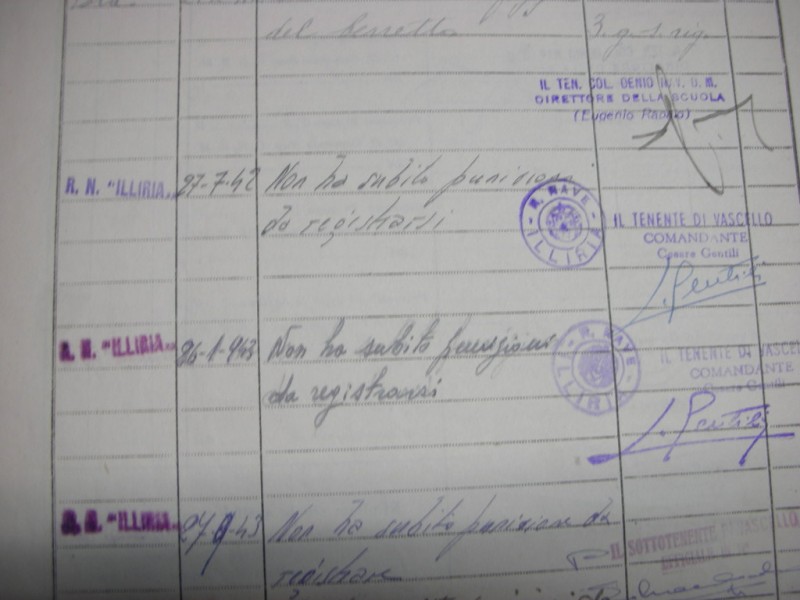 del berretto 3. g. s. rig.
IL TEN. COL. GENIO
DIRETTORE DELLA SCUOLA
(Eugenio
R. N. "ILLIRIA" 27-7-42 Non ha subito punizioni
da registrarsi
R. NAVE ILLIRIA
IL TENENTE DI VASCELLO
COMANDANTE
Cesare Gentili
Gentili
R. N. "ILLIRIA" 26-1-943 Non ha subito punizioni
da registrarsi
R. NAVE ILLIRIA
IL TENENTE DI VASCELLO
COMANDANTE
Cesare Gentili
Gentili
"ILLIRIA" 43 Non ha subito punizione da
registrare
IL SOTTOTENENTE DI VASCELLO